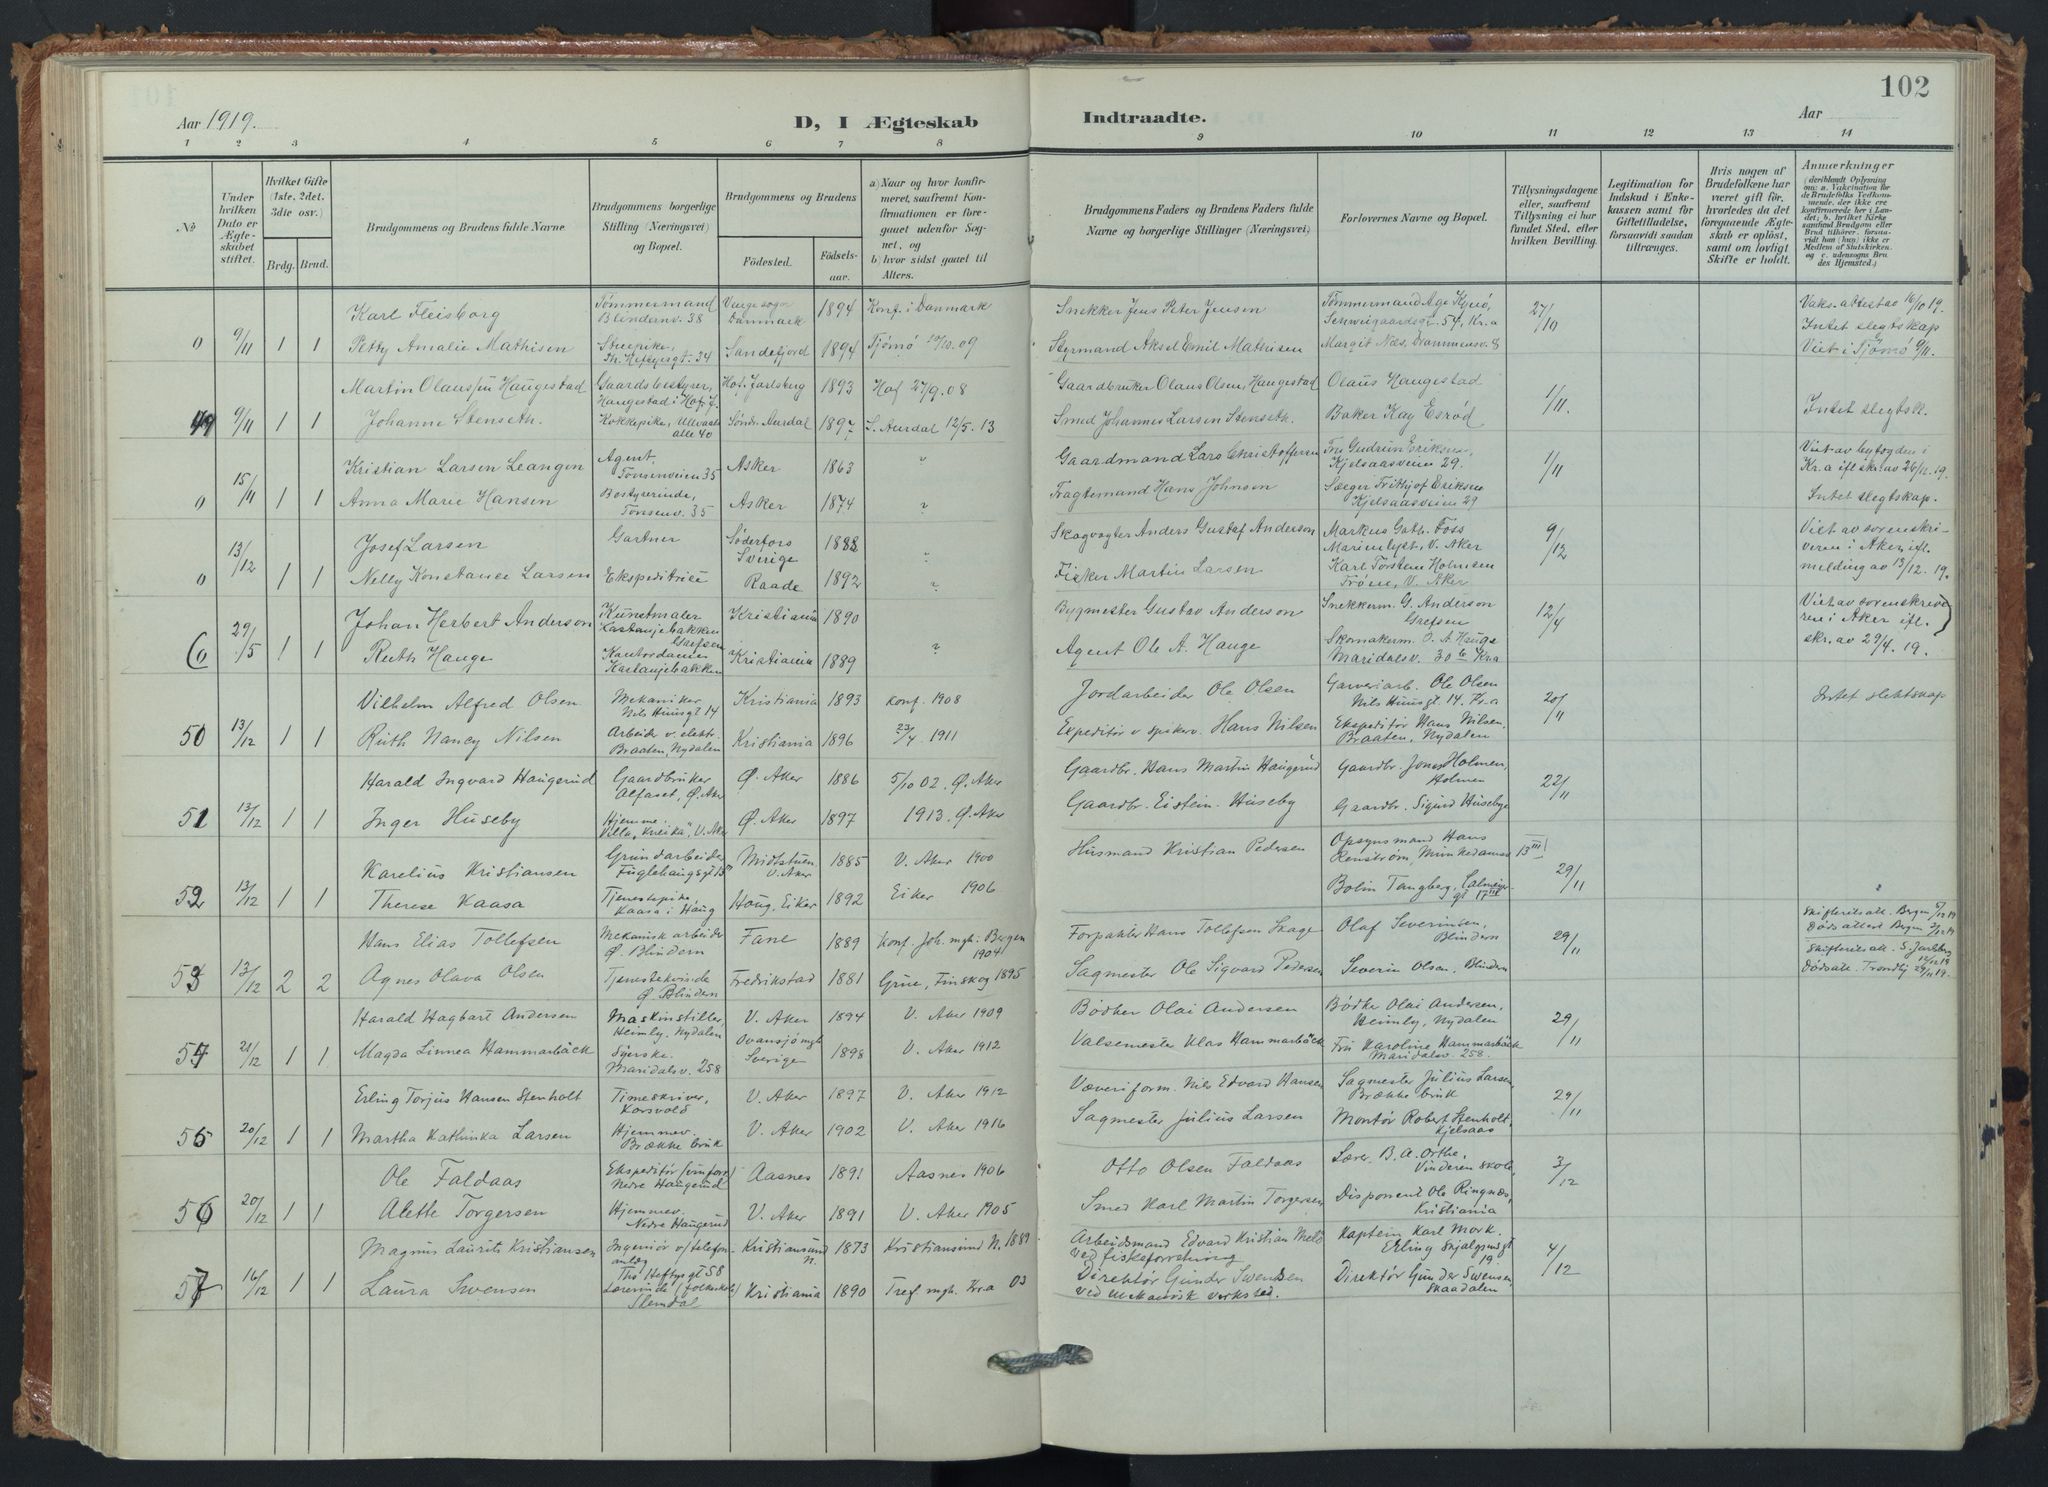 102
Aar 1919.
D, I Ægteskab
Indtraadte.
Aar
1 2 3 4 5 6 7 8
9 10 11 12 13 14
No
Under hvilken Dato er Ægteskabet stiftet.
Hvilket Gifte (1ste, 2det, 3die osv.)
Brdg. Brud.
Brudgommens og Brudens fulde Navne
Brudgommens borgerlige Stilling (Næringsvei) og Bopæl.
Brudgommens og Brudens
Fødested.
Fødselsaar.
a) Naar og hvor konfirmeret, saafremt Konfirmationen er foregaaet udenfor Sognet, og
b) hvor sidst gaaet til Alters.
Brudgommens Faders og Brudens Faders fulde Navne og borgerlige Stillinger (Næringsvei)
Forlovernes Navne og Bopæl.
Tillysningsdagene eller, saafremt Tillysning ei har fundet Sted, efter hvilken Bevilling.
Legitimation for Indskud i Enkekassen samt for Giftetilladelse, forsaavidt saadan tiltrænges.
Hvis nogen af Brudefolkene har været gift før, hvorledes da det foregaaende Ægteskab er opløst, samt om lovligt Skifte er holdt.
Anmærkninger
(deriblandt Oplysning om: a. Vakcination for de Brudefolks Vedkommende, der ikke ere konfirmerede her i Landet; b. hvilket Kirkesamfund Brudgom eller Brud tilhører, forsaavidt han (hun) ikke er Medlem af Statskirken, og c. udensogns Brudes Hjemsted.)
Karl Fleisborg Tømmermand Blindernv. 38 Danmark 1894 Konf. i Danmark Snekker Jens Peter Jensen Tømmermand Schweigaardsgt. 54, Kr.a 27/10 Vaks. attest av 16/10 19.
0 9/11 1 1 Petty Amalie Mathisen Th. Heftyesgt. 34 Sandefjord 1894 Tjømø 09 Styrmand Aksel Emil Mathisen Margit Næs, Drammensv. 8 Intet slegtskap Viet i Tjømø 9/11.
Martin Olaussøn Haugestad Gaardsbestyrer, Haugestad i Hof, J. Hof, Jarlsberg 1893 Hof 27/9. 08 Gaardbruker Olaus Olsen Haugestad Olaus Haugestad 1/11.
49 9/11 1 1 Johanne Stenseth Kokkepike, Ullevaals alle 40 Sønd. Aurdal 1897 S. Aurdal 12/5. 13 Smed Johannes Larsen Stenseth Baker Kay Esrød Intet slegtsk.
Kristian Larsen Leangen Agent, Tonsenveien 35 Asker 1863 " Gaardmand Lars Christoffersen Fru Gudrun Eriksen, Kjelsaasveien 29. 1/11 Viet av byfogden i Kr.a ifl. skr. av 26/11. 19.
0 15/11 1 1 Anna Marie Hansen Bestyrerinde, Tonsenv. 35 Asker 1874 " Fragtemand Hans Johnsen Frithjof Eriksen Kjelsaasveien 29 Intet slegtskap.
Josef Larsen Gartner Söderfors Sverige 1888 " Skogvogter Anders Gustaf Anderson Markus Gath. Foss Marienlyst, V. Aker 9/12 Viet av sorenskriveren i Aker ifl. melding av 13/12. 19.
0 13/12 1 1 Nelly Konstance Larsen Ekspeditrice Raade 1892 " Fisker Martin Larsen Karl Torsten Holmsen Frøen, V. Aker
Johan Herbert Anderson Kunstmaler Kastanjebakken Grefsen Kristiania 1890 Bygmester Gustav Anderson Snekkerm. G. Anderson Grefsen 12/4 Viet av sorenskriveren i Aker ifl. skr. av 29/4. 19.
0 29/5 1 1 Ruth Hauge Kontordame Kastanjebakken Kristiania 1889 " Agent Ole A. Hauge Skomakerm. O. A. Hauge Maridalsv. 30 b Kr.a
Vilhelm Alfred Olsen Mekaniker Nils Huusgt 14 Kristiania 1893 konf. 1908 Jordarbeider Ole Olsen Garveriarb. Ole Olsen Nils Huusgt. 14. Kr.a 20/11 Intet slektskap
50 13/12 1 1 Ruth Nancy Nilsen Arbeider v. elektr. Braaten, Nydalen Kristiania 1896 1911 Expeditør v spikerv. Hans Nilsen Ekspeditør Hans Nilsen, Braaten, Nydalen
Harald Ingvard Haugerud Gaardbruker Alfaset, Ø. Aker Ø. Aker 1886 5/10 02. Ø. Aker Gaardbr. Hans Martin Haugerud Gaardbr. Jonas Holmen, Holmen 22/11
51 13/12 1 1 Inger Huseby Hjemme. Villa "Kneika", V. Aker Ø. Aker 1897 1913. Ø. Aker Gaardbr. Eistein. Huseby Gaardbr. Sigurd Huseby
Karelius Kristiansen Grundarbeider Fuglehaugsgt 15 Midtstuen V. Aker 1885 V. Aker 1900 Husmand Kristian Pedersen Opsynsmand Hans Renstrøm, Munkedamsv. 13 III 29/11
52 13/12 1 1 Therese Kaasa Tjenestepike, Kaasa i Haug Haug, Eiker 1892 Eiker 1906 Bolin Tangberg, gt 17
Hans Elias Tollefsen Mekanisk arbeider Ø. Blindern Fane 1889 Konf. Joh. mgh. Bergen 1904 Forpakter Hans Tollefsen Skage Olaf Severinsen, Blindern 29/11 Skifteretsatt. Bergen 5/12 19 Dødsattest Bergen 3/12 19
53 13/12 2 2 Agnes Olava Olsen Tjenestekvinde Ø Blindern Fredrikstad 1881 Grue, Finskog 1895 Sagmester Ole Sigvard Pedersen Severin Olsen, Blindern Skifteretsatt. S. Jarlsberg 12/12 19 Dødsatt. Trondhj. 29/11 19.
Harald Hagbart Andersen Maskinstiller, Heimly, Nydalen V. Aker 1894 V. Aker 1909 Bødker Olai Andersen Bødke Olai Andersen, Heimly, Nydalen 29/11
54 21/12 1 1 Magda Linnea Hammarbäck Syerske. Maridalsv. 258 Ovansjö mgh Sverige 1898 V. Aker 1912 Valsemester Klas Hammarbäck Fru Karoline Hammarbäck Maridalsv. 258.
Erling Torjus Hansen Stenholt Timeskriver, Korsvold V. Aker 1897 V. Aker 1912 Væveriform. Nils Edvard Hansen Sagmester Julius Larsen, Brække bruk 29/11
55 20/12 1 1 Martha Kathinka Larsen Hjemmev. Brække bruk V. Aker 1902 V. Aker 1916 Sagmester Julius Larsen Montør Robert Stenholt, Kjelsaas
Ole Faldaas Ekspeditør Nedre Haugerud Aasnes 1891 Aasnes 1906 Otto Olsen Faldaas Lærer B. A. Orthe, Vinderen skole 3/12
56 20/12 1 1 Alette Torgersen Hjemmev. Nedre Haugerud V. Aker 1891 V. Aker 1905 Smed Karl Martin Torgersen Disponent Ole Ringnæs, Kristiania
Magnus Laurits Kristiansen Ingeniør v/telefonanlæg Ths Heftyes gt 58 Kristiansund N. 1873 Kristiansund N. 1889 Arbeidsmand Edvard Kristian Melø ved fiskeforretning Kaptein Karl Mork. Erling Skjalgsøns gt 19. 4/12
57 16/12 1 1 Laura Swensen Lærerinde (folkeskole) Slemdal Kristiania 1890 Tref. mgh. Kr.a 03 Direktør Gunder Swensen ved mekanisk verksted. Direktør Gunder Swensen Skaadalen